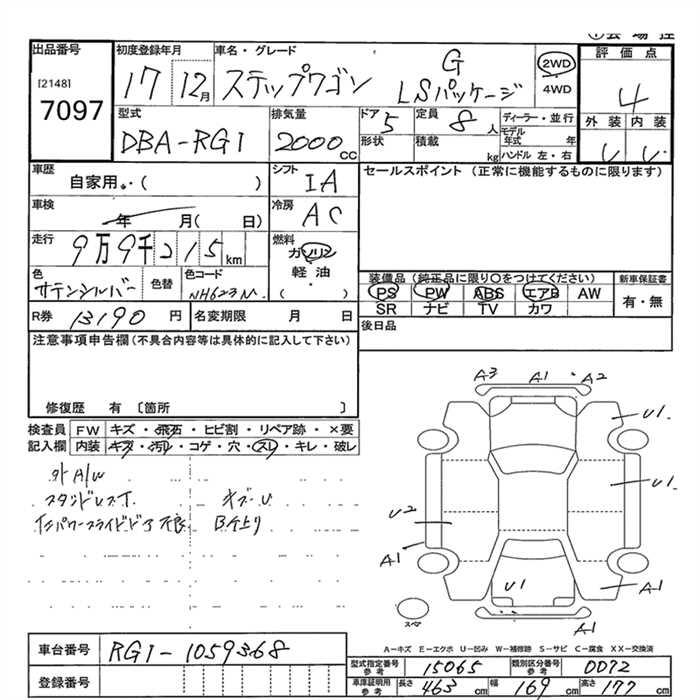 出品番号
[2148]
7097
初度登録年月
17 12月
車名・グレード
ステップワゴン G
LSパッケージ
2WD
4WD
評価点
4
外装 内装
型式
DBA-RG1
排気量
2000cc
ドア
5
形状
定員
8人
積載
kg
ディーラー・並行
モデル年式 年
ハンドル 左・右
車歴
自家用・( )
シフト
IA
セールスポイント (正常に機能するものに限ります)
車検
年 月( 日)
冷房
AC
走行
9万9千215km
燃料
ガソリン
軽油
( ・ )
色
サテンシルバー
色替
色コード
NH623M
装備品 (純正品に限り○をつけてください)
PS PW ABS エアB AW
SR ナビ TV カワ
新車保証書
有・無
R券 13190円
名変期限 月 日
後日品
注意事項申告欄 (不具合内容等は具体的に記入して下さい)
修復歴 有 〔箇所 〕
検査員記入欄
FW キズ・飛石・ヒビ割・リペア跡・×要
内装 キズ・汚レ・コゲ・穴・スレ・キレ・破レ
外A/W
キズ・U
パワースライドドア不良 B仕上り
A3 A1 A2
U1
U1
U2
A1
U1
A1
A1
スペア
A－キズ E－エクボ U－凹み W－補修跡 S－サビ C－腐食 XX－交換済
車台番号 RG1-1059368
登録番号
型式指定番号 参考 15065
類別区分番号 参考 0072
車庫証明用 参考 長さ 463cm 幅 169cm 高さ 177cm